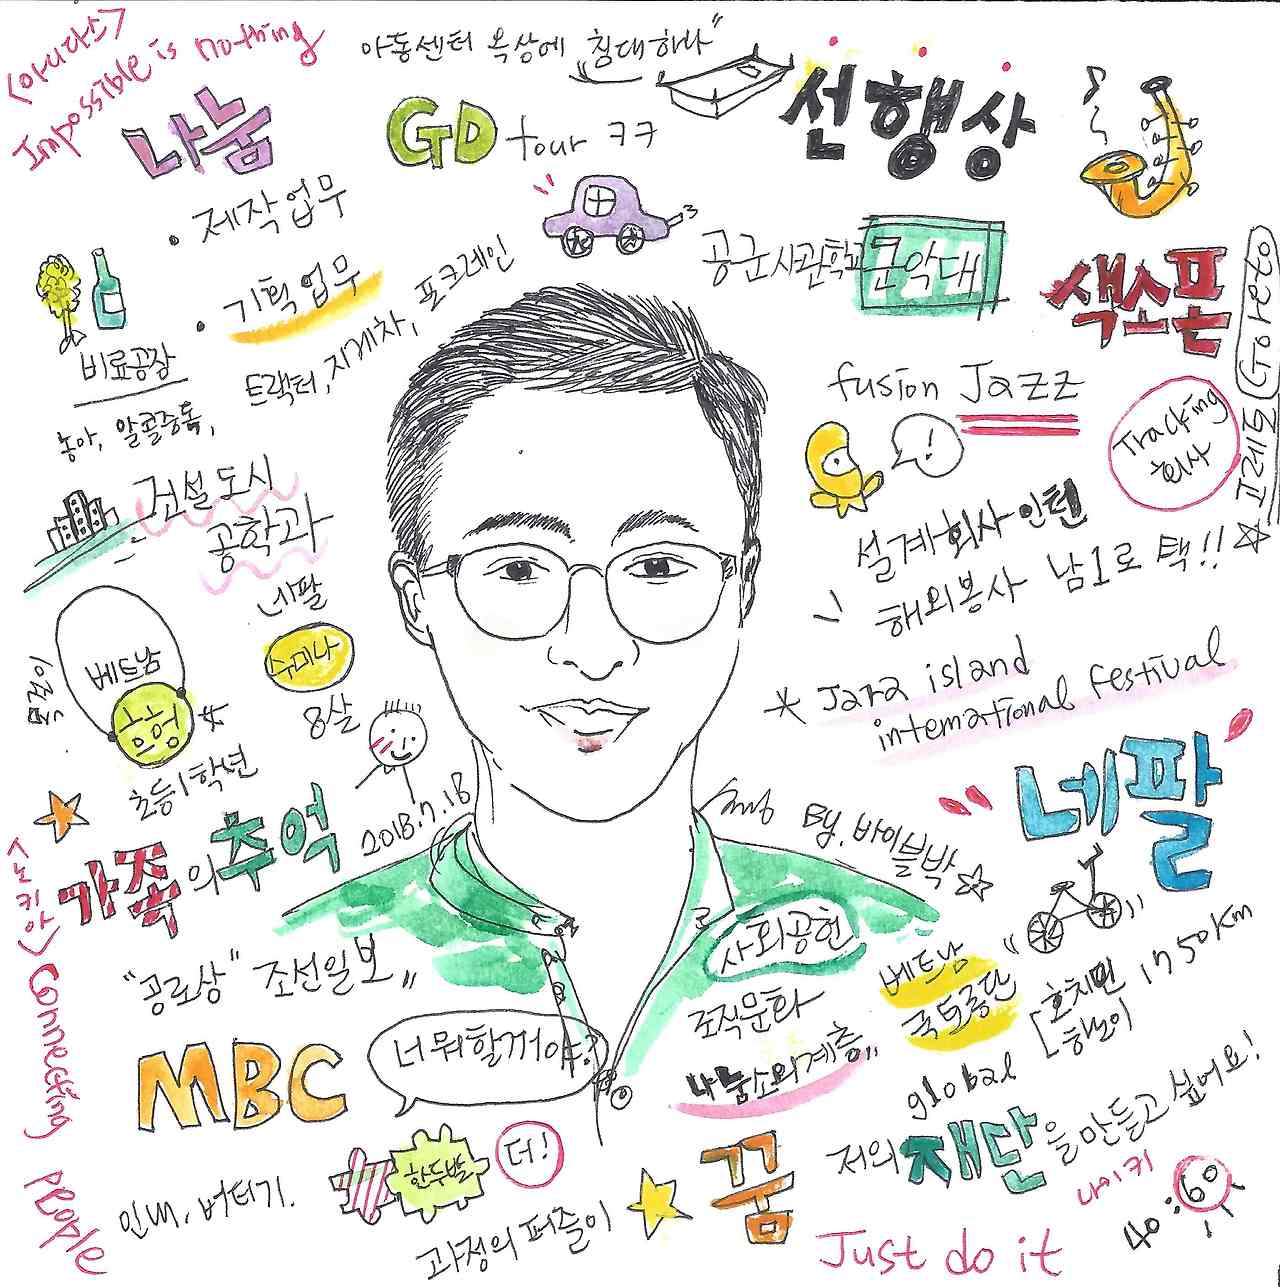 <아디다스>
Impossible is nothing
나눔
아동센터 옥상에 "침대하나"
GD tour ㄱㄱ
선행상
• 제작업무
• 기획업무
트랙터, 지게차, 포크레인
공군사관학교군악대
색소폰
비료공장
농아, 알콜중독,
fusion Jazz
!
Tracking
회사
고레토 Goreto
건설도시
공학과
설계회사인턴
해외봉사 남1로 택!!
네팔
수미나
8살
베트남
흥형
초등1학년
Jara island
international festival
네팔
가족의추억
2018.7.18
By. 바이블박
<노키아> Connecting people
"공로상" 조선일보"
사회공헌
조직문화
나눔소외계층"
베트남
국토종단
호치민 1750km
하노이
MBC
너 뭐할꺼야?
global
저의 재단을 만들고 싶어요!
인내, 버티기.
한두발
더!
과정의 퍼즐이
꿈
나이키
Just do it
40:60